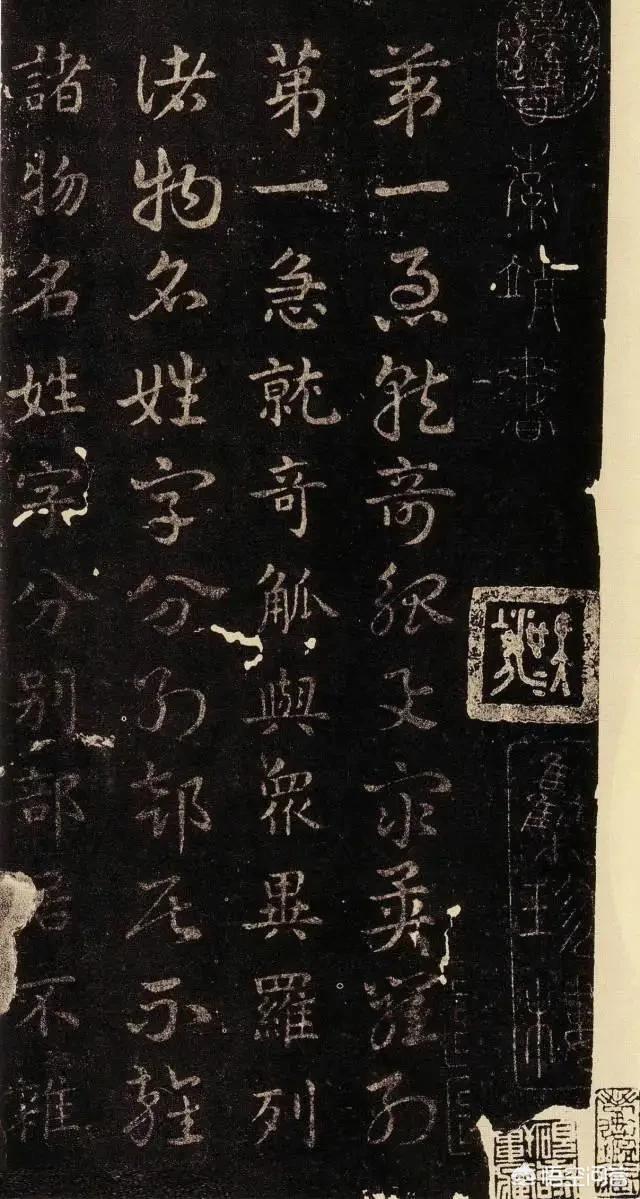 索靖書
第一急就奇觚與衆異羅列
第一急就奇觚與衆異羅列
諸物名姓字分別部居不雜
諸物名姓字分別部居不雜
悟空问答